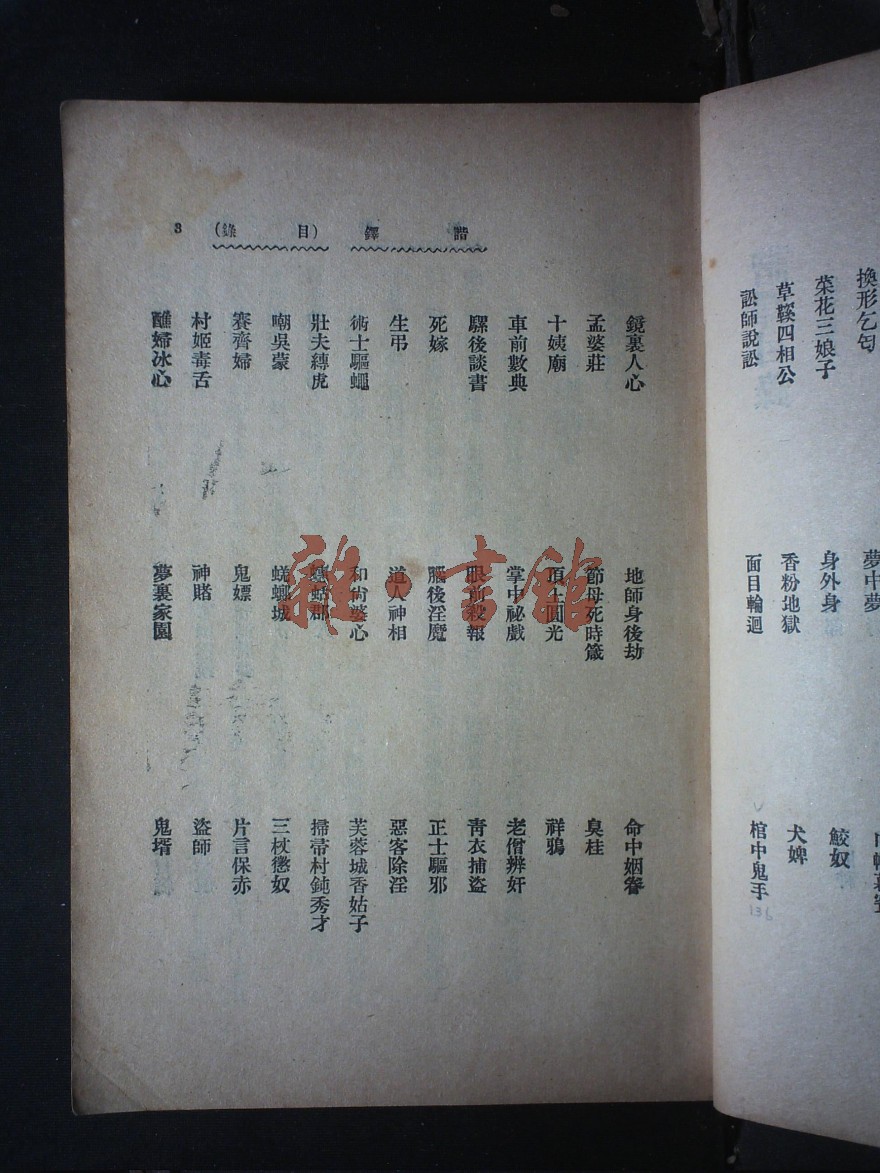 換形乞匃
夢中夢
菜花三娘子
身外身
鮫奴
草鞵四相公
香粉地獄
犬婢
訟師說訟
面目輪迴
棺中鬼手
136
諧鐸(目錄) 3
鏡裏人心
地師身後劫
命中姻眷
孟婆莊
節母死時箴
臭桂
十姨廟
頂上圓光
祥鴉
車前數典
掌中祕戲
老僧辨奸
騾後談書
眼前殺報
青衣捕盜
死嫁
腦後淫魔
正士驅邪
生弔
道人神相
惡客除淫
術士驅蠅
和尚婆心
芙蓉城香姑子
壯夫縛虎
蟪蛄郡
掃帚村鈍秀才
嘲吳蒙
蜣螂城
三杖懲奴
賽齊婦
鬼嫖
片言保赤
村姬毒舌
神賭
盜師
醮婦冰心
夢裏家園
鬼壻
雜·書館